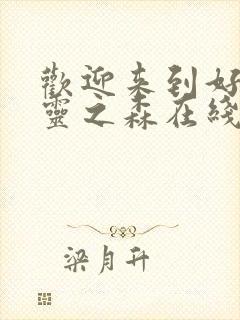 歡迎来到好
靈之森在綫
梁月升